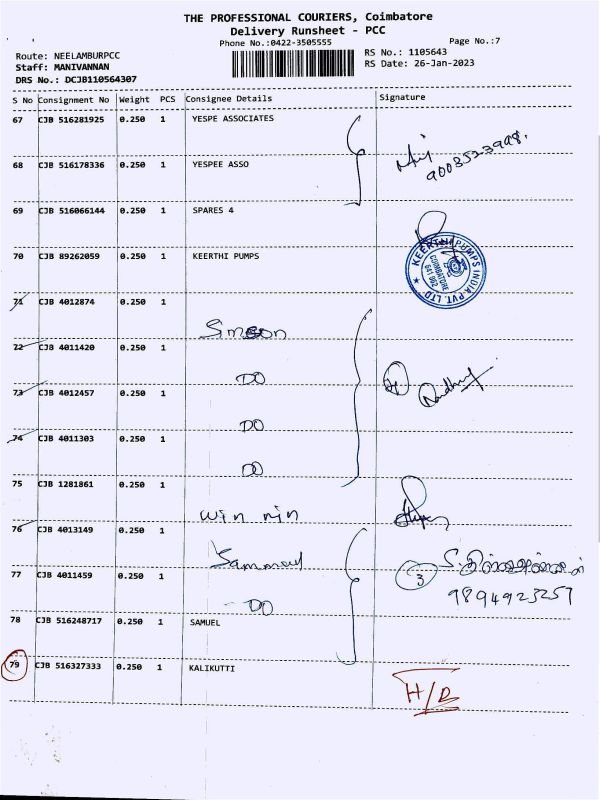 THE PROFESSIONAL COURIERS, Coimbatore
Delivery Runsheet - PCC
Phone No.:0422-3505555
Page No.:7
Route: NEELAMBURPCC
RS No.: 1105643
Staff: MANIVANNAN
RS Date: 26-Jan-2023
DRS No.: DCJB110564307
S No Consignment No Weight PCS Consignee Details Signature
67 CJB 516281925 0.250 1 YESPE ASSOCIATES
9003523998.
68 CJB 516178336 0.250 1 YESPEE ASSO
69 CJB 516066144 0.250 1 SPARES 4
70 CJB 89262059 0.250 1 KEERTHI PUMPS
KEERTHI PUMPS INDIA PVT. LTD.
COIMBATORE
641 062
71 CJB 4012874 0.250 1
Simson
72 CJB 4011420 0.250 1
DO
73 CJB 4012457 0.250 1
DO
74 CJB 4011303 0.250 1
DO
75 CJB 1281861 0.250 1
win nin
76 CJB 4013149 0.250 1
3
77 CJB 4011459 0.250 1
DO
9894923257
78 CJB 516248717 0.250 1 SAMUEL
79 CJB 516327333 0.250 1 KALIKUTTI
H/D